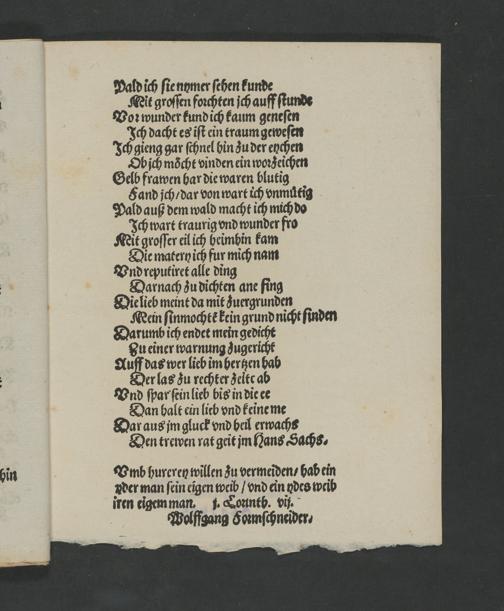 Bald ich sie nymer sehen kunde
Mit grossen forchten jch auff stunde
Vor wunder kund ich kaum genesen
Jch dacht es ist ein traum gewesen
Jch gieng gar schnel hin zu der eychen
Ob jch möcht vinden ein worzeichen
Gelb frawen har die waren blutig
Fand jch / dar von wart ich vnmütig
Bald auß dem wald macht ich mich do
Jch wart traurig vnd wunder fro
Mit grosser eil ich heimhin kam
Die matery ich fur mich nam
Vnd reputiret alle ding
Darnach zu dichten ane fing
Die lieb meint da mit zuergrunden
Mein sin mocht kein grund nicht finden
Darumb ich endet mein gedicht
Zu einer warnung zugericht
Auff das wer lieb im hertzen hab
Der las zu rechter zeite ab
Vnd spar sein lieb bis in die ee
Dan halt ein lieb vnd keine me
Dar aus jm gluck vnd heil erwachs
Den trewen rat geit jm Hans Sachs.
Vmb hurerey willen zu vermeiden / hab ein
yder man sein eigen weib / vnd ein ydes weib
iren eigem man. j. Corinth. vij.
Wolffgang Formschneider.
hin